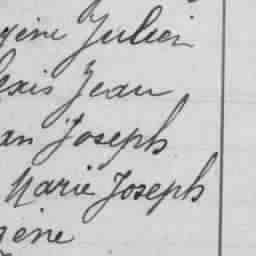 gène Julien
lexis Jean
an Joseph
Marie Joseph
gène